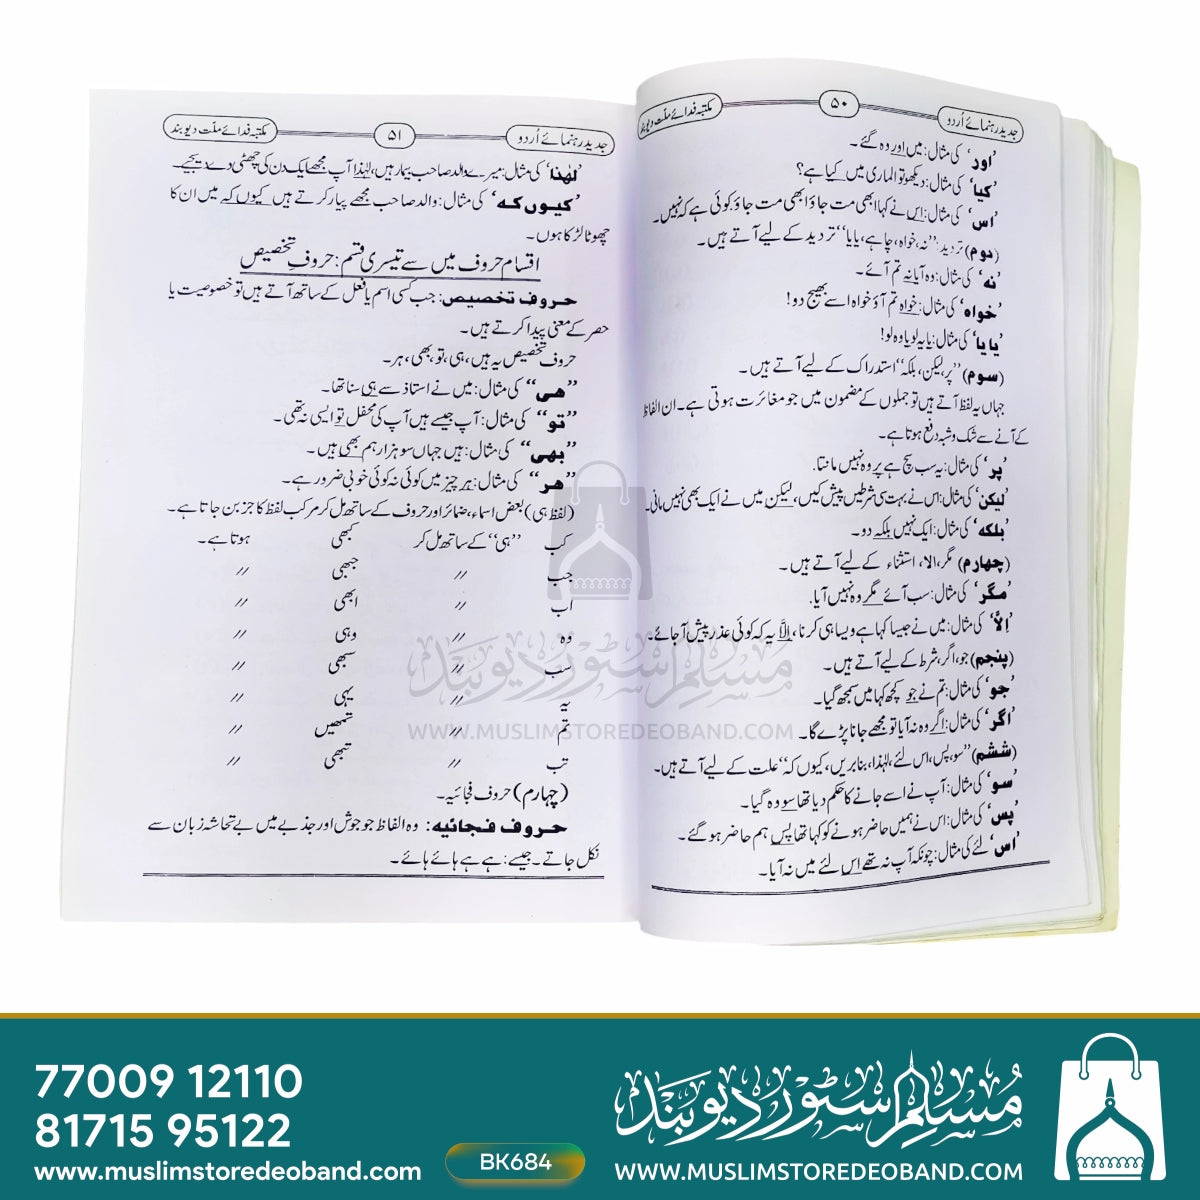 جدید رہنمائے اُردو
۵۰
مکتبہ فدائے ملّت دیوبند
’اور‘ کی مثال: میں اور وہ گئے۔
’کیا‘ کی مثال: دیکھو تو الماری میں کیا ہے؟
’اس‘ کی مثال: اس نے کہا ابھی مت جاؤ ابھی مت جاؤ کوئی ہے کہ نہیں۔
(دوم) تردید: ’’نہ، خواہ، چاہے، یایا‘‘ تردید کے لیے آتے ہیں۔
’نہ‘ کی مثال: وہ آیا نہ تم آئے۔
’خواہ‘ کی مثال: خواہ تم آؤ خواہ اسے بھیج دو!
’یا یا‘ کی مثال: یا یہ لو یا وہ لو!
(سوم) ’’پر، لیکن، بلکہ‘‘ استدراک کے لیے آتے ہیں۔
جہاں یہ لفظ آتے ہیں تو جملوں کے مضمون میں جو مغائرت ہوتی ہے۔ ان الفاظ
کے آنے سے شک و شبہ دفع ہوتا ہے۔
’پر‘ کی مثال: یہ سب سچ ہے پر وہ نہیں مانتا۔
’لیکن‘ کی مثال: اس نے بہت سی شرطیں پیش کیں، لیکن میں نے ایک بھی نہیں مانی۔
’بلکہ‘ کی مثال: ایک نہیں بلکہ دو۔
(چہارم) مگر، الا، استثناء کے لیے آتے ہیں۔
’مگر‘ کی مثال: سب آئے مگر وہ نہیں آیا۔
’اِلَّا‘ کی مثال: میں نے جیسا کہا ہے ویسا ہی کرنا، اِلَّا یہ کہ کوئی عذر پیش آجائے۔
(پنجم) جو، اگر، شرط کے لیے آتے ہیں۔
’جو‘ کی مثال: تم نے جو کچھ کہا میں سمجھ گیا۔
’اگر‘ کی مثال: اگر وہ نہ آیا تو مجھے جانا پڑے گا۔
(ششم) ’’سو، پس، اس لئے، لہٰذا، بنابریں، کیوں کہ‘‘ علت کے لیے آتے ہیں۔
’سو‘ کی مثال: آپ نے اسے جانے کا حکم دیا تھا سو وہ گیا۔
’پس‘ کی مثال: اس نے ہمیں حاضر ہونے کو کہا تھا پس ہم حاضر ہو گئے۔
’اس‘ لئے کی مثال: چونکہ آپ نہ تھے اس لئے میں نہ آیا۔
جدید رہنمائے اُردو
۵۱
مکتبہ فدائے ملّت دیوبند
’لہٰذا‘ کی مثال: میرے والد صاحب بیمار ہیں، لہٰذا آپ مجھے ایک دن کی چھٹی دے دیجیے۔
’کیوں کہ‘ کی مثال: والد صاحب مجھے پیار کرتے ہیں کیوں کہ میں ان کا
چھوٹا لڑکا ہوں۔
اقسام حروف میں سے تیسری قسم: حروفِ تخصیص
حروف تخصیص: جب کسی اسم یا فعل کے ساتھ آتے ہیں تو خصوصیت یا
حصر کے معنی پیدا کرتے ہیں۔
حروف تخصیص یہ ہیں، ہی، تو، بھی، ہر۔
’’ھی‘‘ کی مثال: میں نے استاذ سے ہی سنا تھا۔
’’تو‘‘ کی مثال: آپ جیسے ہیں آپ کی محفل تو ایسی نہ تھی۔
’’بھی‘‘ کی مثال: ہیں جہاں سو ہزار ہم بھی ہیں۔
’’ھر‘‘ کی مثال: ہر چیز میں کوئی نہ کوئی خوبی ضرور ہے۔
(لفظ ہی) بعض اسماء، ضمائر اور حروف کے ساتھ مل کر مرکب لفظ کا جز بن جاتا ہے۔
کب ’’ہی‘‘ کے ساتھ مل کر کبھی ہوتا ہے۔
جب 〃 جبھی 〃
اب 〃 ابھی 〃
وہ 〃 وہی 〃
سب 〃 سبھی 〃
یہ 〃 یہی 〃
تم 〃 تمھیں 〃
تب 〃 تبھی 〃
(چہارم) حروف فجائیہ۔
حروف فجائیہ: وہ الفاظ جو جوش اور جذبے میں بے تحاشہ زبان سے
نکل جاتے۔ جیسے: ہے ہے ہائے ہائے۔
مسلم سٹور دیوبند
WWW.MUSLIMSTOREDEOBAND.COM
77009 12110
81715 95122
www.muslimstoredeoband.com
BK684
مسلم سٹور دیوبند
WWW.MUSLIMSTOREDEOBAND.COM